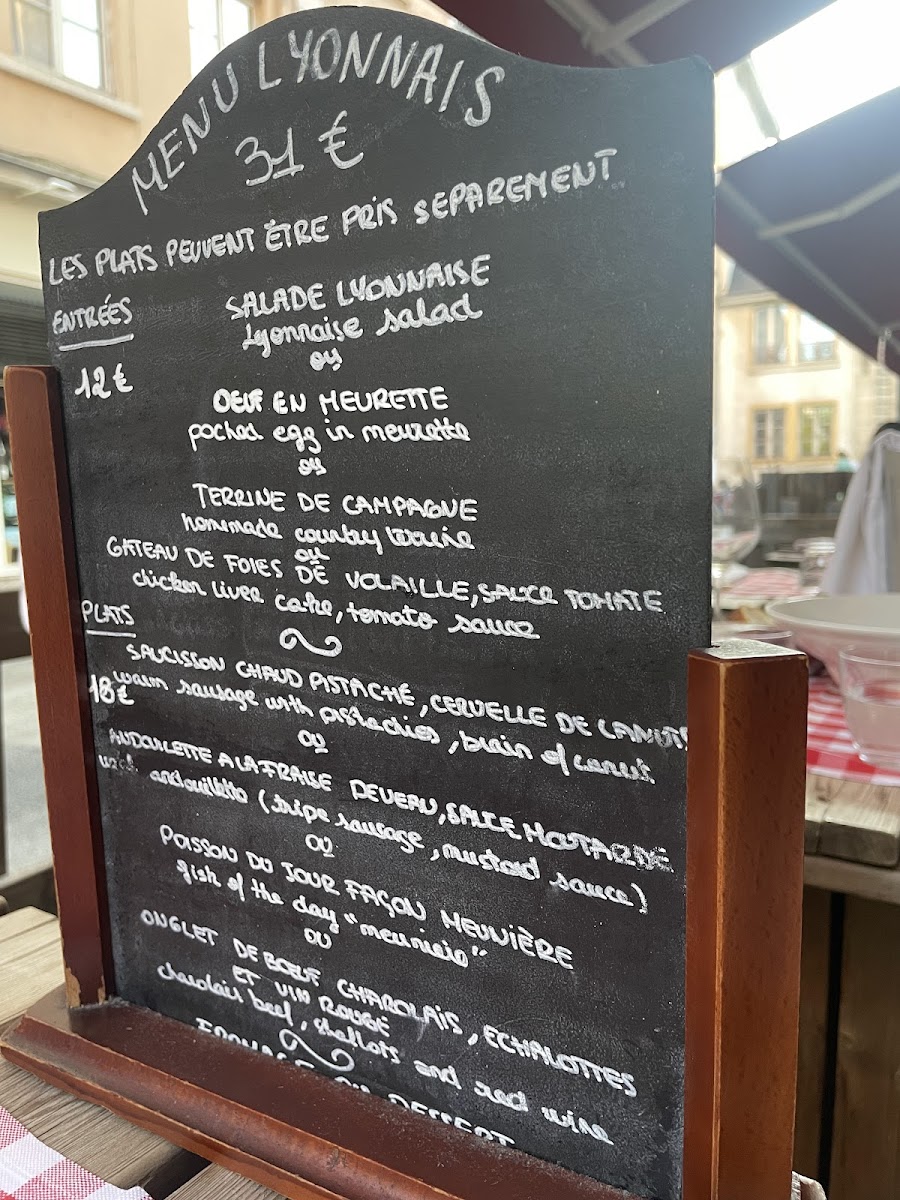 MENU LYONNAIS
31 €
LES PLATS PEUVENT ÊTRE PRIS SEPAREMENT
ENTRÉES
12 €
SALADE LYONNAISE
Lyonnaise salad
ou
OEUF EN MEURETTE
poched egg in meurette
ou
TERRINE DE CAMPAGNE
homemade country terrine
ou
GATEAU DE FOIES DE VOLAILLE, SAUCE TOMATE
chicken liver cake, tomato sauce
PLATS
18 €
SAUCISSON CHAUD PISTACHÉ, CERVELLE DE CANUTS
warm sausage with pistachies, brain of canut
ou
ANDOUILETTE A LA FRAISE DE VEAU, SAUCE MOUTARDE
andouillette (tripe sausage, mustard sauce)
ou
POISSON DU JOUR FAÇON MEUNIÈRE
fish of the day "meunière"
OU
ONGLET DE BŒUF CHAROLAIS, ECHALOTTES
ET VIN ROUGE
charolais beef, shallots and red wine
FROMAGE OU DESSERT